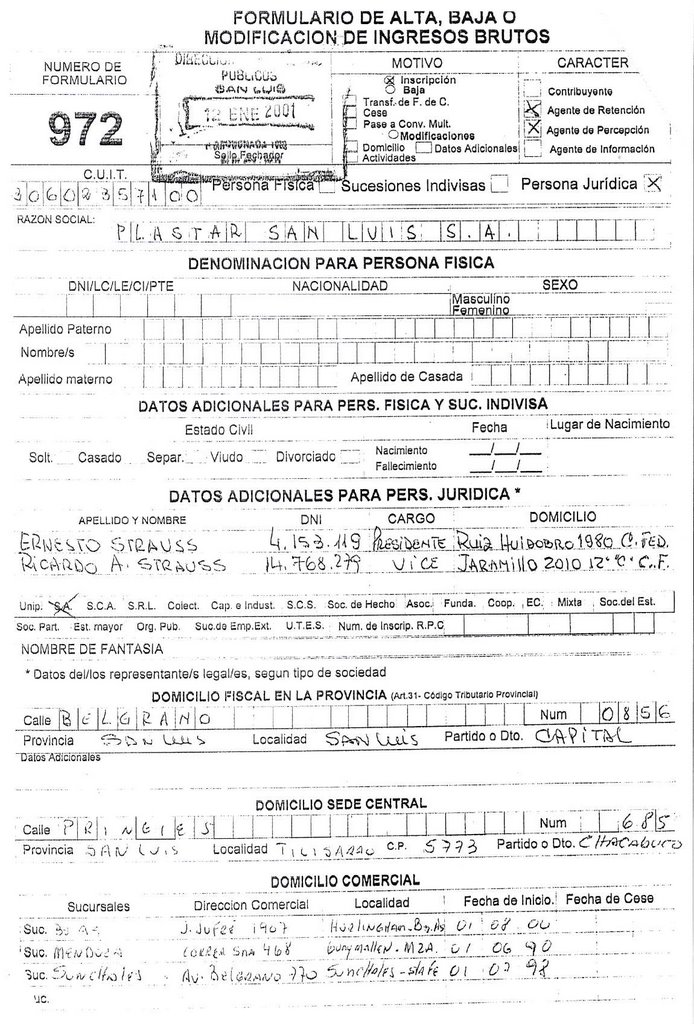 FORMULARIO DE ALTA, BAJA O
MODIFICACION DE INGRESOS BRUTOS
NUMERO DE
FORMULARIO
972
PUBLICOS
SAN LUIS
12 ENE 2001
Sello Fechador
MOTIVO
Inscripción
Baja
Transf. de F. de C.
Cese
Pase a Conv. Mult.
Modificaciones
Domicilio Datos Adicionales
Actividades
CARACTER
Contribuyente
Agente de Retención
Agente de Percepción
Agente de Información
C.U.I.T.
30602357100
Persona Fisica Sucesiones Indivisas Persona Jurídica X
RAZON SOCIAL:
PLASTAR SAN LUIS S.A.
DENOMINACION PARA PERSONA FISICA
DNI/LC/LE/CI/PTE NACIONALIDAD SEXO
Masculino
Femenino
Apellido Paterno
Nombre/s
Apellido materno Apellido de Casada
DATOS ADICIONALES PARA PERS. FISICA Y SUC. INDIVISA
Estado Civil Fecha Lugar de Nacimiento
Solt. Casado Separ. Viudo Divorciado
Nacimiento __/__/__
Fallecimiento __/__/__
DATOS ADICIONALES PARA PERS. JURIDICA *
APELLIDO Y NOMBRE DNI CARGO DOMICILIO
ERNESTO STRAUSS 4.153.119 PRESIDENTE RUIZ HUIDOBRO 1980 C. FED.
RICARDO A. STRAUSS 14.768.279 VICE JARAMILLO 2010 12° "C" C.F.
Unip. S.A. S.C.A. S.R.L. Colect. Cap. e Indust. S.C.S. Soc. de Hecho Asoc. Funda. Coop. EC. Mixta Soc.del Est.
Soc. Part. Est. mayor Org. Pub. Suc.de Emp.Ext. U.T.E.S. Num. de Inscrip. R.P.C
NOMBRE DE FANTASIA
* Datos del/los representante/s legal/es, segun tipo de sociedad
DOMICILIO FISCAL EN LA PROVINCIA (Art.31- Código Tributario Provincial)
Calle BELGRANO Num 0856
Provincia SAN LUIS Localidad SAN LUIS Partido o Dto. CAPITAL
Datos Adicionales
DOMICILIO SEDE CENTRAL
Calle PRINGLES Num 685
Provincia SAN LUIS Localidad TILISARAO C.P. 5773 Partido o Dto. CHACABUCO
DOMICILIO COMERCIAL
Sucursales Direccion Comercial Localidad Fecha de Inicio. Fecha de Cese
Suc. Bs As J. JUFRE 1907 HURLINGHAM-Bs.As 01 08 00
Suc. MENDOZA CORREA SAA 468 GUAYMALLEN-MZA. 01 06 90
Suc. SUNCHALES AV. BELGRANO 770 SUNCHALES-STAFE 01 07 98
uc.